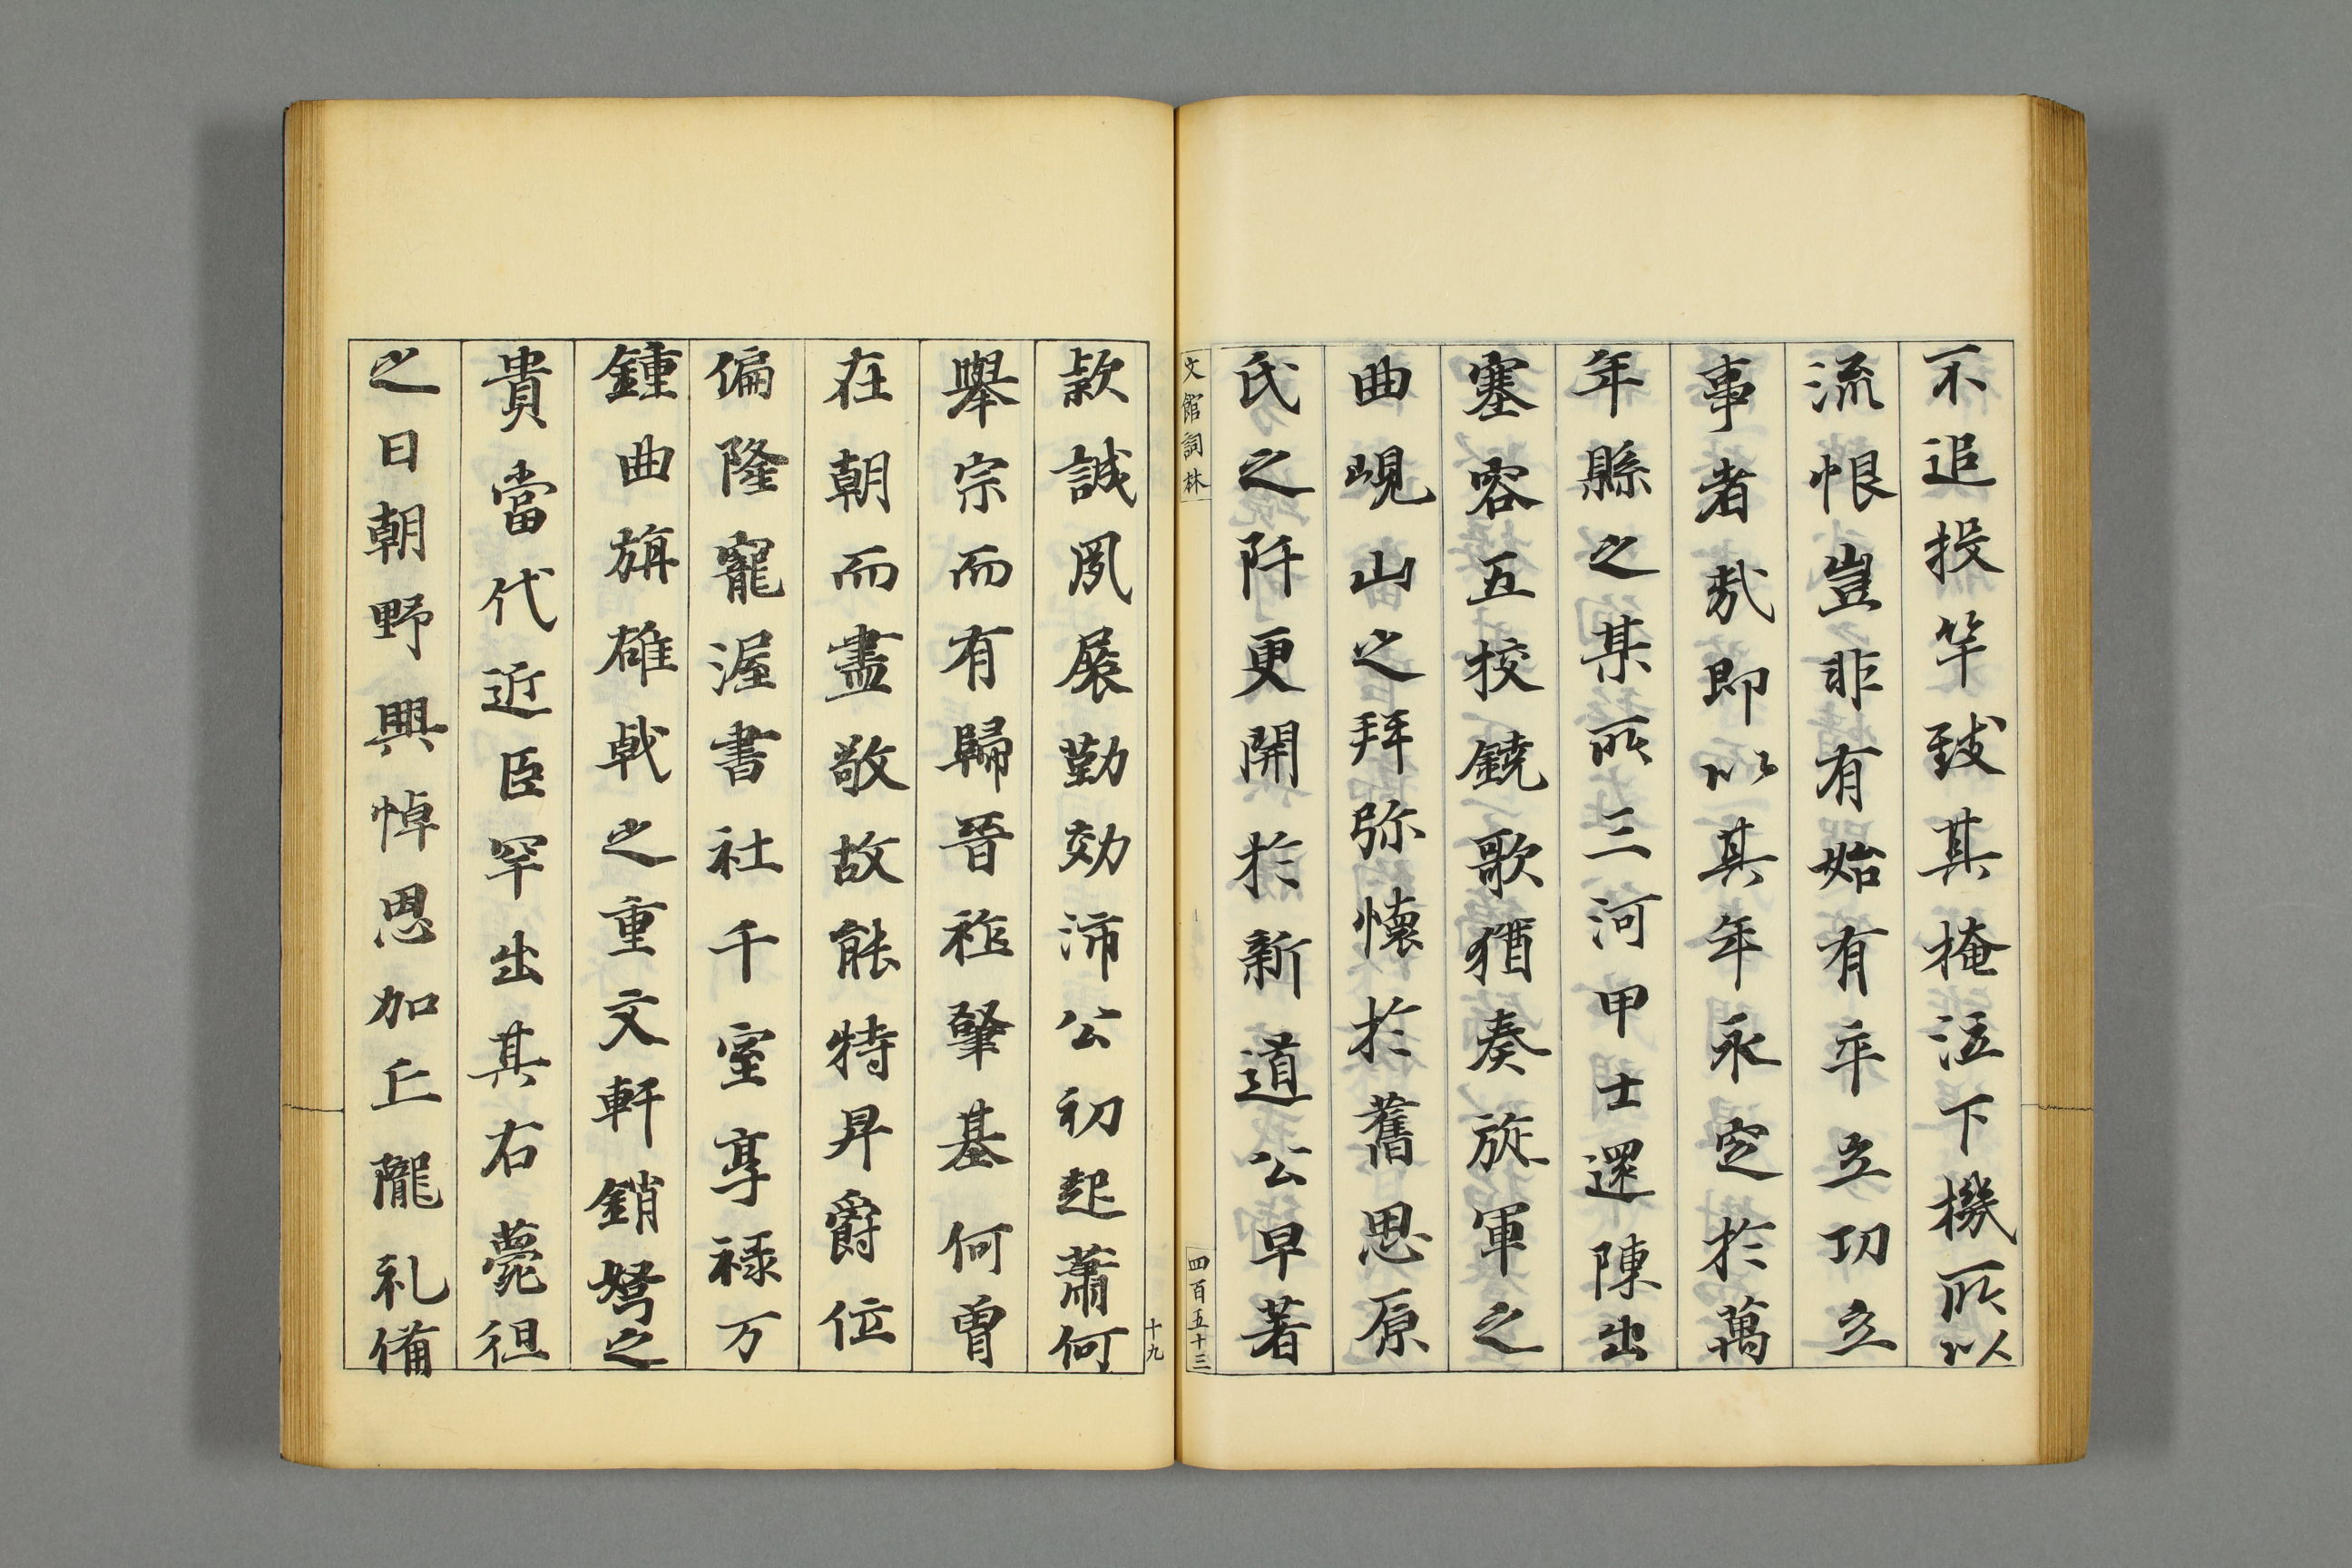 不追投竿致其掩泣下機所以
流恨豈非有始有卒立功立
事者哉即以其年永窆於萬
年縣之某所三河甲士還陳出
塞容五校鐃歌猶奏旋軍之
曲峴山之拜弥懷於舊思原
氏之阡更開於新道公早著
文館詞林
四百五十三
十九
款誠夙展勤効沛公初起蕭何
舉宗而有歸晉祚肇基何曾
在朝而盡敬故能特昇爵位
偏隆寵渥書社千室享禄万
鍾曲旃雄戟之重文軒銷弩之
貴當代近臣罕出其右薨徂
之日朝野興悼恩加丘隴礼備